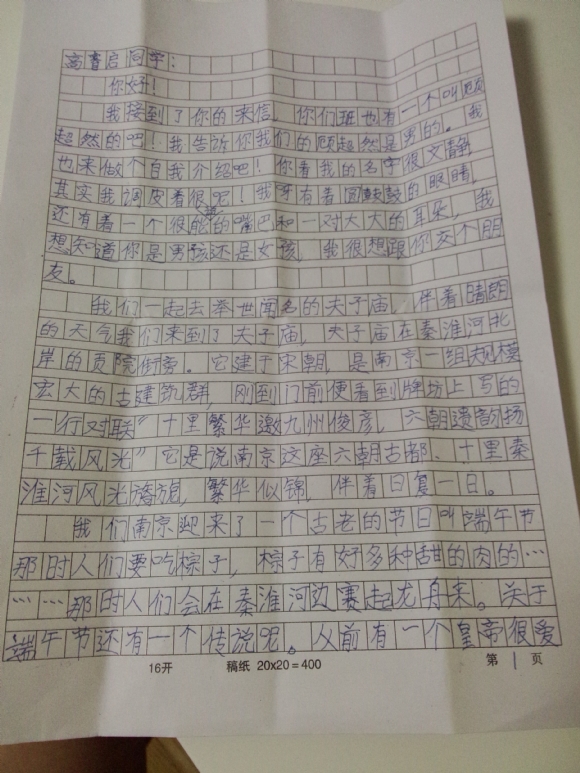 高睿启同学：
你好！
我接到了你的来信，你们班也有一个叫顾
超然的吧！我告诉你我们的顾超然是男的。我
也来做个自我介绍吧！你看我的名字很文静
其实我调皮着很呢！我呀有着圆鼓鼓的眼睛，
还有着一个很能说的嘴巴和一对大大的耳朵，我
想知道你是男孩还是女孩，我很想跟你交个朋
友。
我们一起去举世闻名的夫子庙，伴着晴朗
的天气我们来到了夫子庙，夫子庙在秦淮河北
岸的贡院街旁。它建于宋朝，是南京一组规模
宏大的古建筑群，刚到门前便看到牌坊上写的
一行对联“十里繁华邀九州俊彦，六朝遗韵扬
千载风光”它是说南京这座六朝古都、十里秦
淮河风光旖旎，繁华似锦，伴着日复一日。
我们南京迎来了一个古老的节日叫端午节
那时人们要吃粽子，粽子有好多种甜的肉的…
………那时人们会在秦淮河边赛起龙舟来。关于
端午节还有一个传说呢。从前有一个皇帝很爱
16开 稿纸 20×20=400 第1页